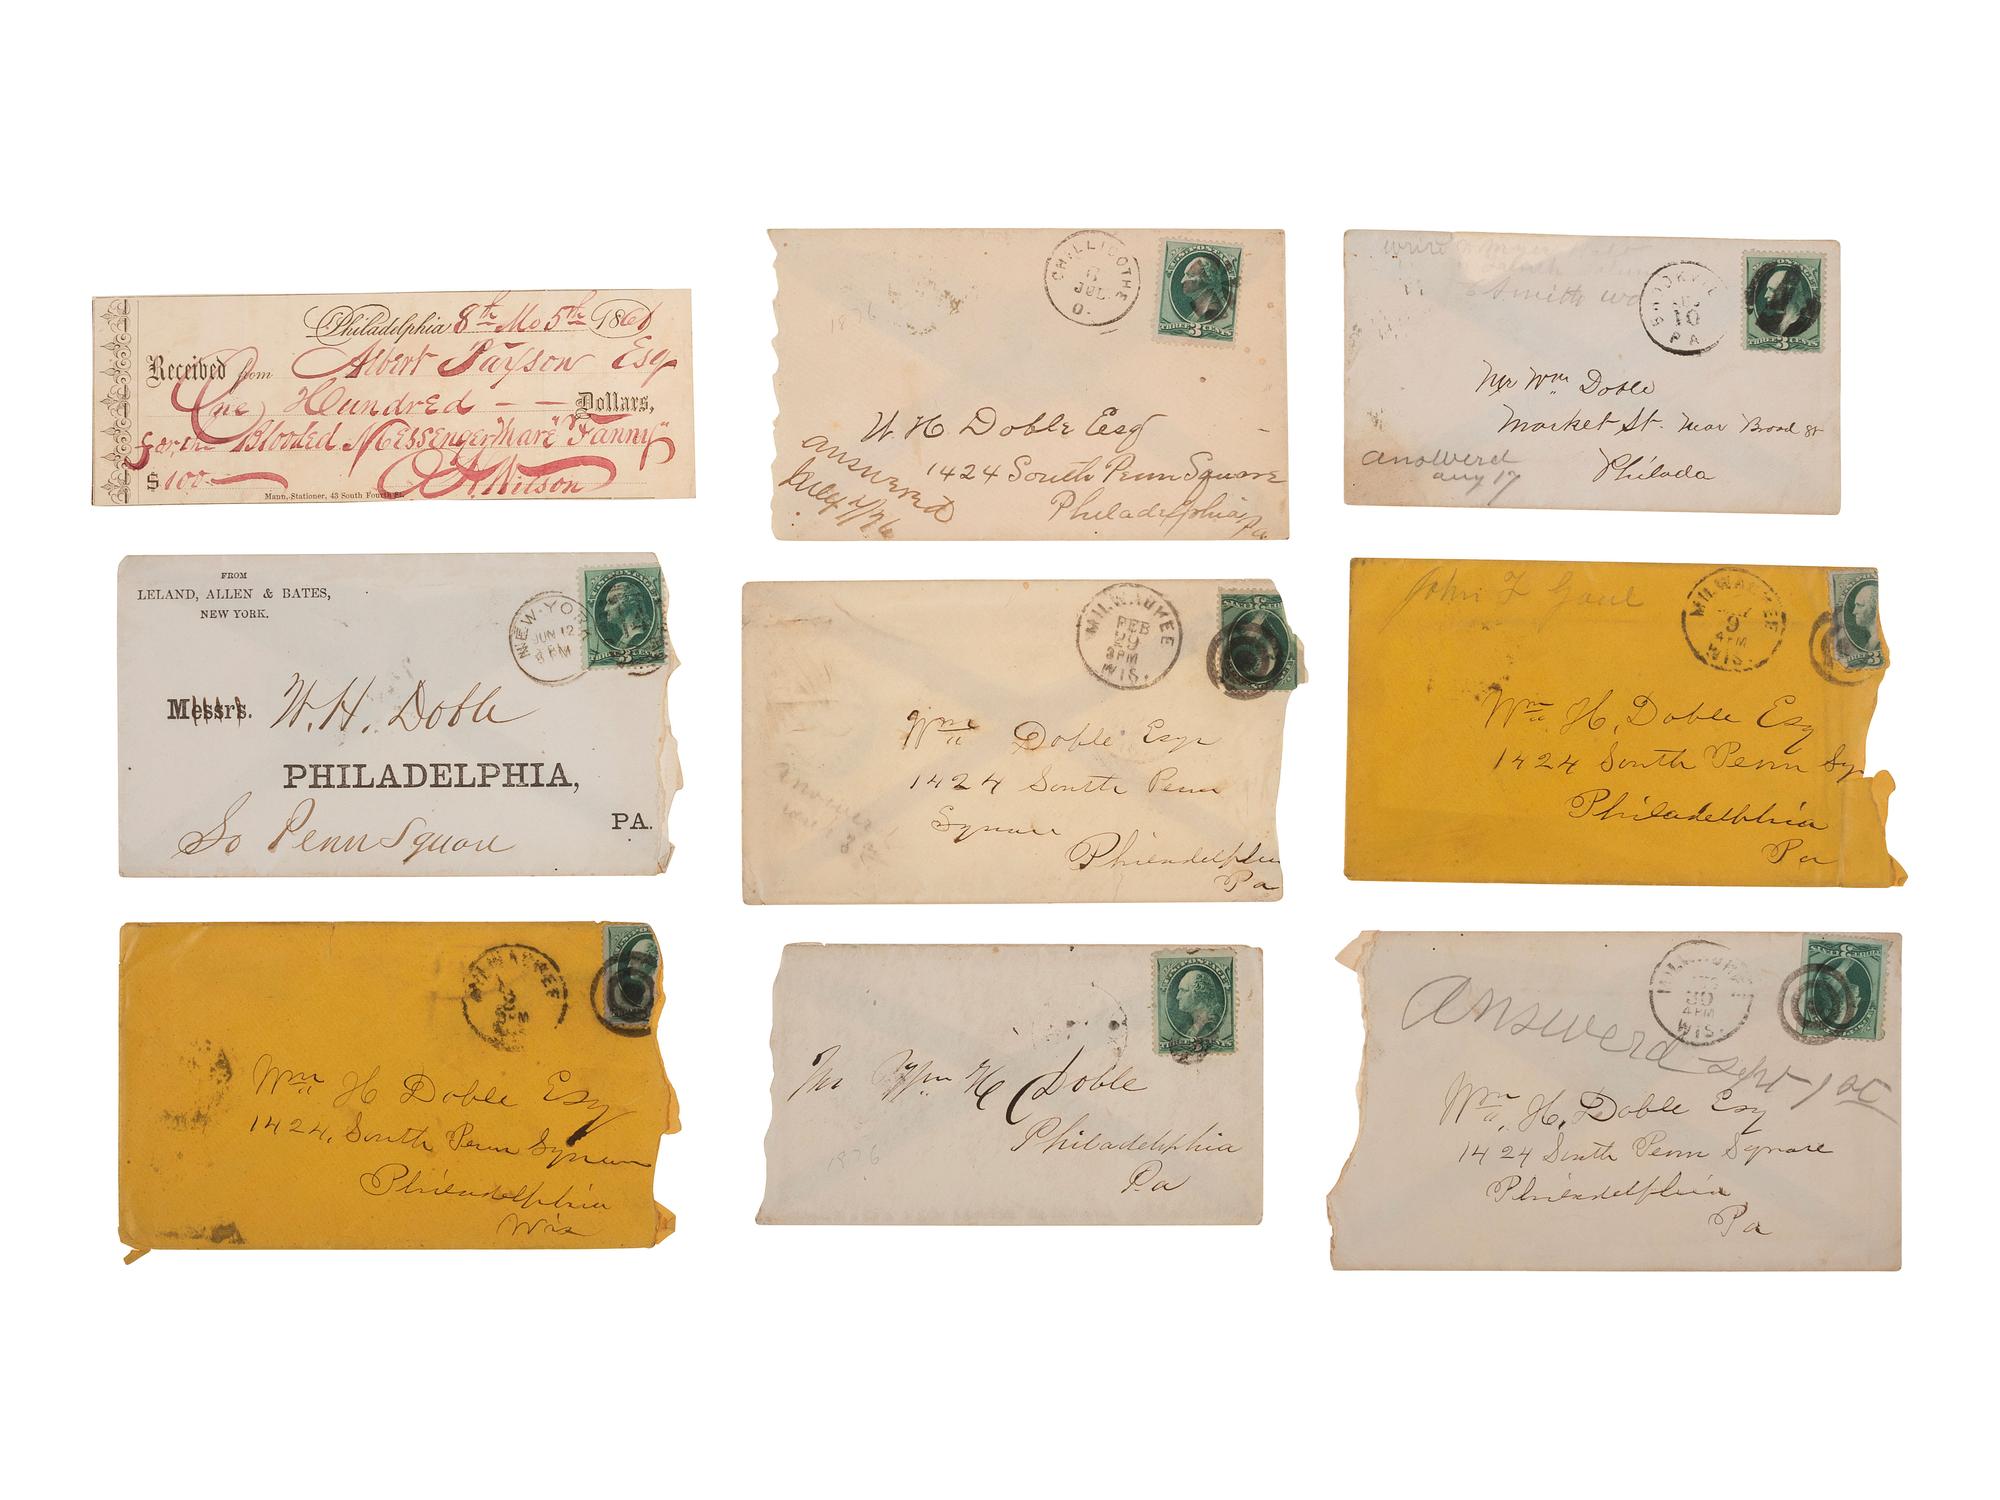 Philadelphia 8th Mo 5th 1861
Received from Albert Payson Esq
One Hundred - - Dollars,
for the Blooded Messenger Mare "Fanny"
$100 A Wilson
Mann, Stationer, 43 South Fourth St.
CHILLICOTHE
JUL
O.
THREE 3 CENTS
1876
W. H. Doble Esq
1424 South Penn Square
Philadelphia Pa
answered
July
BROOKVILLE
10
PA
Mr Wm Doble
Market St. near Broad St
Philada
answerd
aug 17
FROM
LELAND, ALLEN & BATES,
NEW YORK.
NEW-YORK
JUN 12
PM
THREE 3 CENTS
Messrs. W. H. Doble
PHILADELPHIA,
PA.
So Penn Square
MILWAUKEE
FEB
29
3 PM
WIS.
Wm Doble Esqr
1424 South Penn
Square
Philadelphia
Pa
MILWAUKEE
9
4 PM
WIS.
Wm H. Doble Esq
1424 South Penn Sq
Philadelphia
Pa
MILWAUKEE
Wm H Doble Esq
1424, South Penn Square
Philadelphia
Wis
Mr Wm H Doble
Philadelphia
Pa
1876
MILWAUKEE
30
4 PM
WIS.
Answerd Sept 1st
Wm, H. Doble Esq
1424 South Penn Square
Philadelphia
Pa